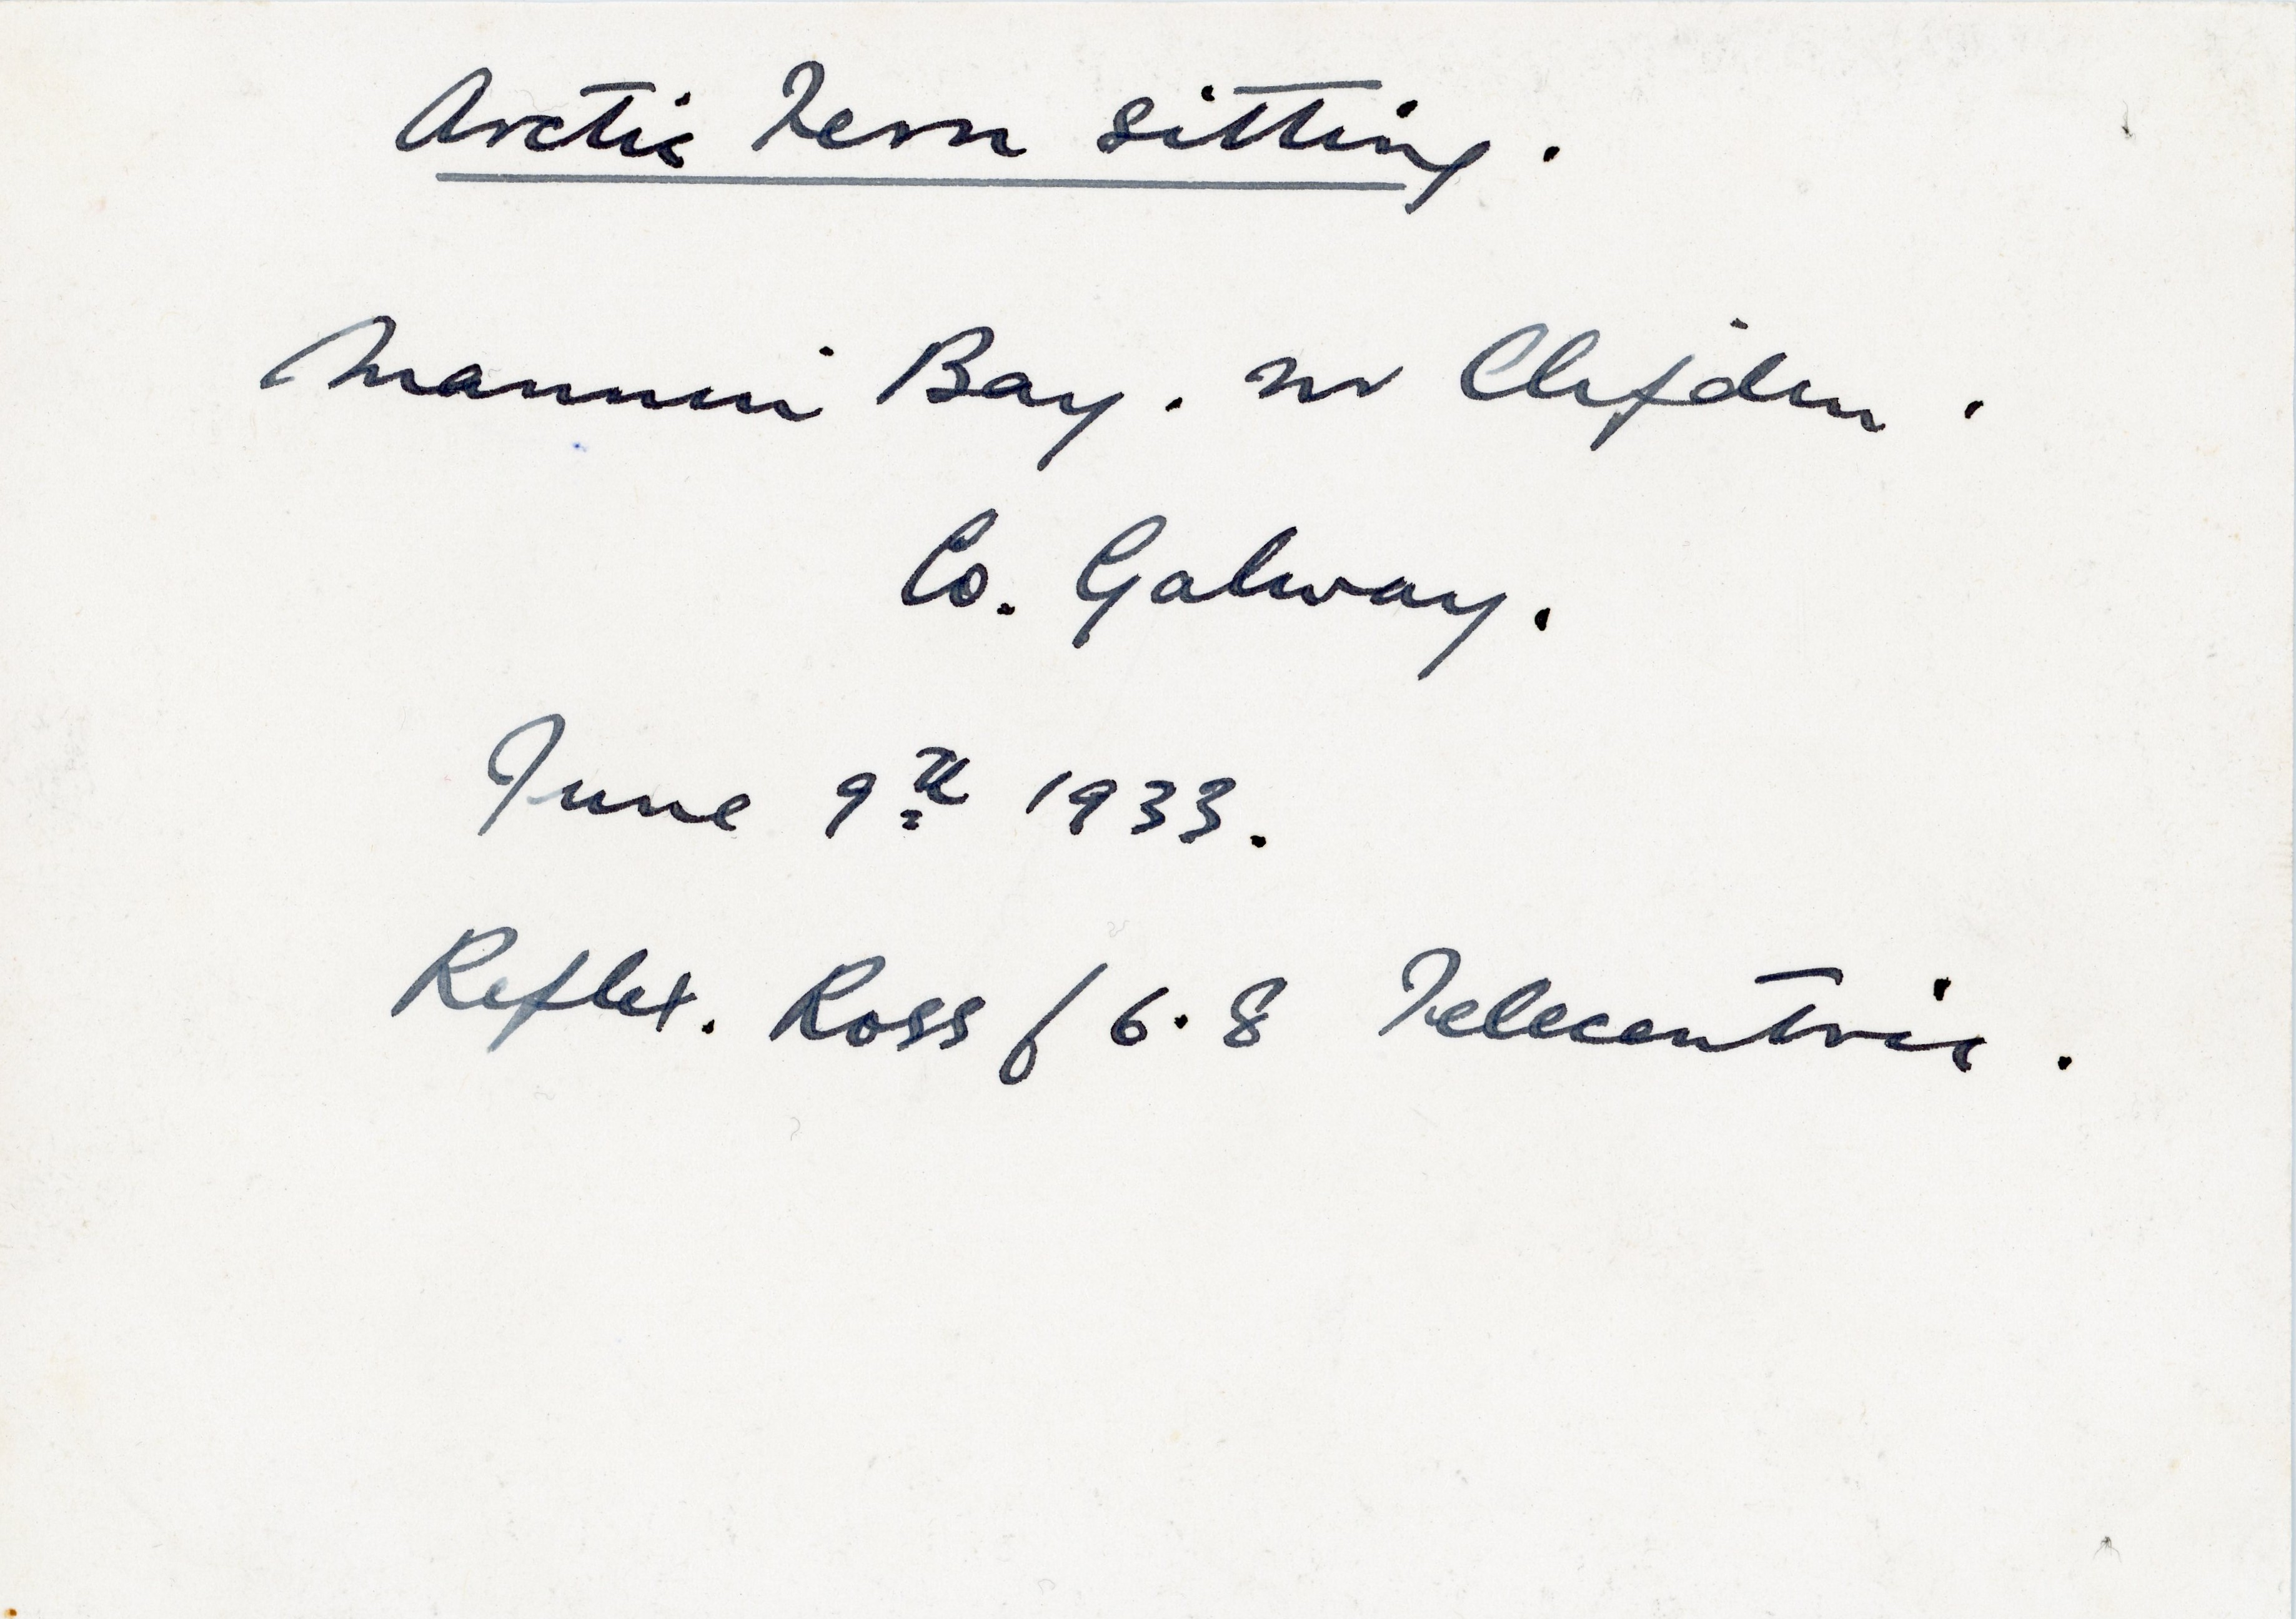 Arctic Tern sitting.
Mannin Bay. nr Clifden.
Co. Galway.
June 9th 1933.
Reflex. Ross f/6.8 Telecentric.